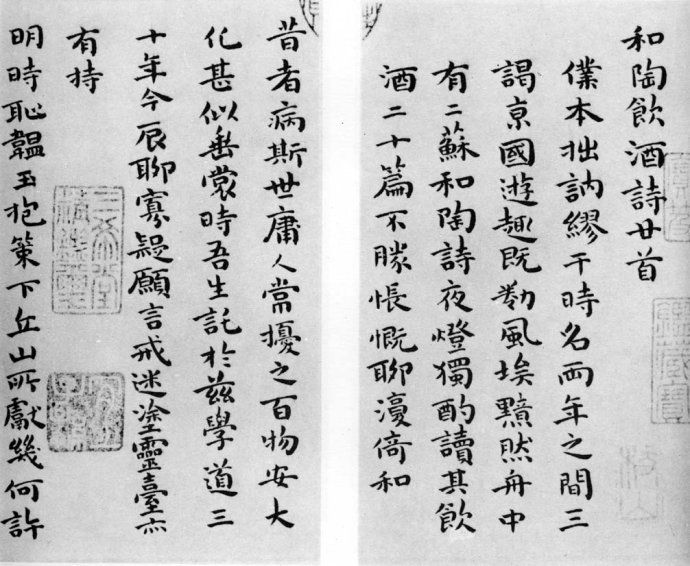 和陶飲酒詩廿首
僕本拙訥繆干時名两年之間三
謁京國遊趣既勌風埃黯然舟中
有二蘇和陶詩夜燈獨酌讀其飲
酒二十篇不勝悵慨聊澷倚和
昔者病斯世庸人常擾之百物安大
化甚似垂裳時吾生託於茲學道三
十年今辰聊寡疑願言戒迷塗靈臺亦
有持
明時恥韞玉抱策下丘山所獻幾何許
三希堂
精鑑璽